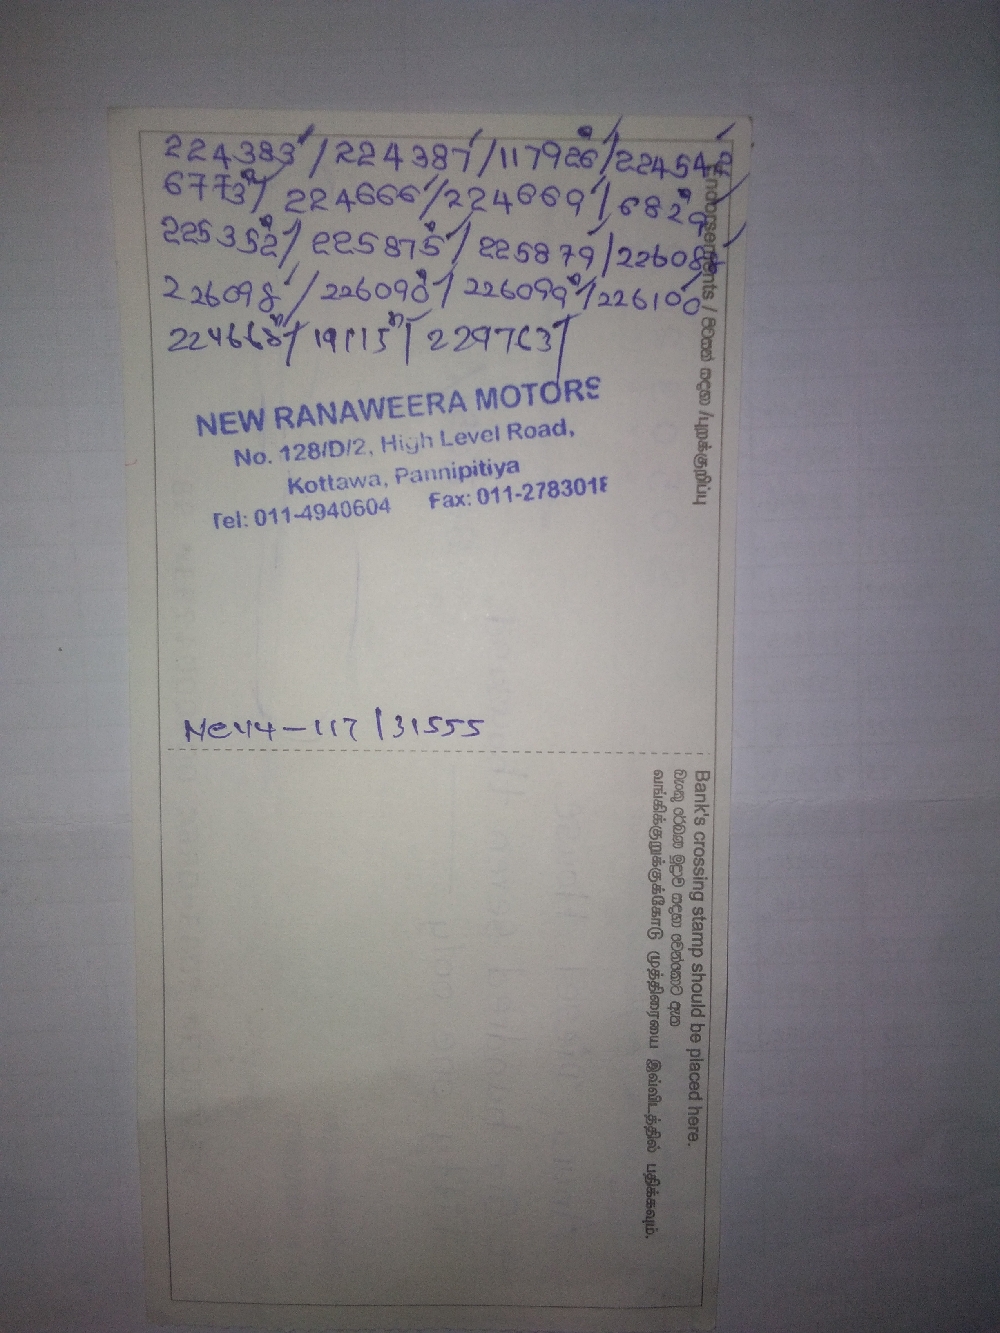 224383 / 224387 / 117926 / 224542
6773 / 224666 / 224669 / 6829
225352 / 225875 / 225879 / 226084
226098 / 226090 / 226099 / 226100
224668 / 19115 / 229763
NEW RANAWEERA MOTORS
No. 128/D/2, High Level Road,
Kottawa, Pannipitiya
Tel: 011-4940604 Fax: 011-2783018
117 / 31555
Endorsements / පිටසන් සඳහා / புறக்குறிப்பு
Bank's crossing stamp should be placed here.
வங்கிக்குறுக்குக்கோடு முத்திரையை இவ்விடத்தில் பதிக்கவும்.